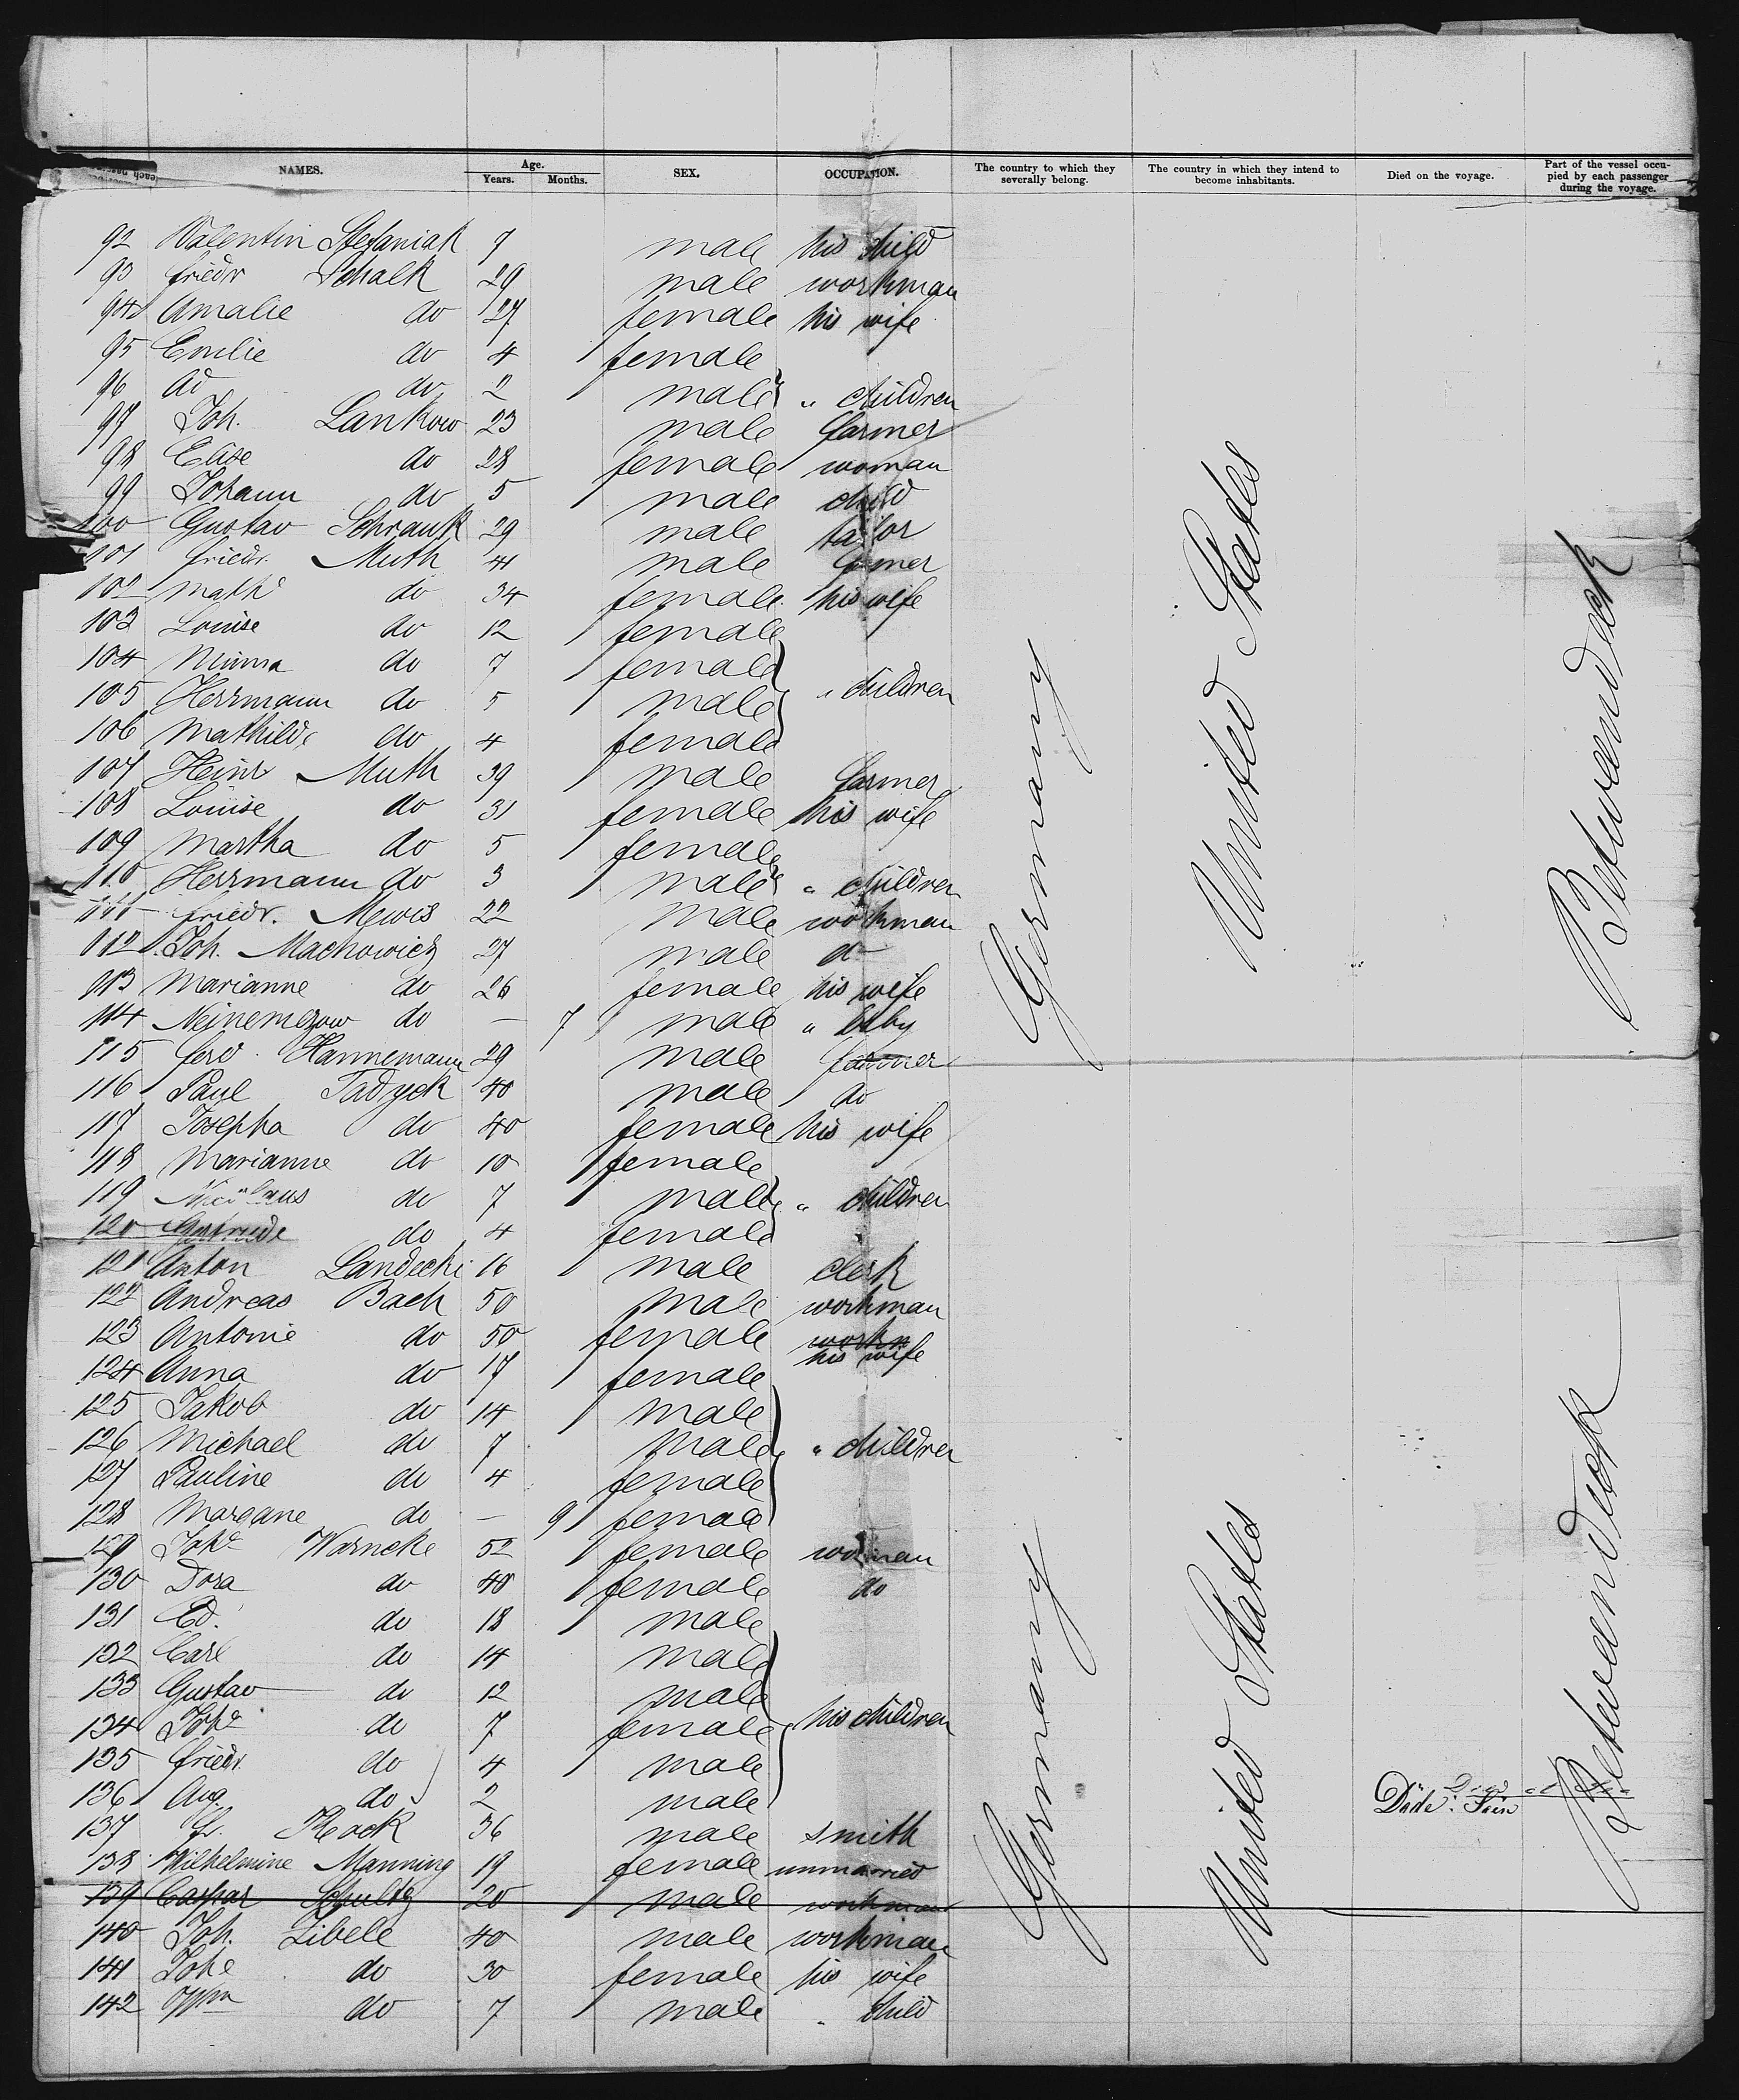 each pass
NAMES. Age. Years. Months. SEX. OCCUPATION. The country to which they severally belong. The country in which they intend to become inhabitants. Died on the voyage. Part of the vessel occupied by each passenger during the voyage.
92 Valentin Stefaniak 7 male his child
93 Friedr Schalk 29 male workman
94 Amalie do 27 female his wife
95 Emilie do 4 female
96 Ad do 2 male " children
97 Joh. Lankow 23 male farmer
98 Elise do 28 female woman
99 Johann do 5 male child
100 Gustav Schrank 29 male tailor
101 Friedr. Muth 41 male farmer
102 Math do 34 female his wife
103 Louise do 12 female
104 Minna do 7 female
105 Herrmann do 5 male " children
106 Mathilde do 4 female
107 Heinr Muth 39 male farmer
108 Louise do 31 female his wife
109 Martha do 5 female
110 Herrmann do 3 male " children
111 Friedr. Mewis 22 male workman
112 Joh. Machowicz 27 male do
113 Marianne do 26 female his wife
114 do — 7 male " baby
115 Ferd. Hannemann 29 male farmer
116 Paul Tadyck 40 male do
117 Josepha do 40 female his wife
118 Marianne do 10 female
119 Nicolaus do 7 male " children
120 Gertrude do 4 female
121 Anton Landecki 16 male clerk
122 Andreas Bach 50 male workman
123 Antonie do 50 female workn his wife
124 Anna do 17 female
125 Jakob do 14 male
126 Michael do 7 male " children
127 Pauline do 4 female
128 do — 9 female
129 Joh^e Warncke 52 female woman
130 Dora do 40 female do
131 Ed. do 18 male
132 Carl do 14 male
133 Gustav do 12 male
134 Joh^e do 7 female his children
135 Friedr. do 4 male
136 Aug. do 2 male
137 Fr. Rock 36 male smith
138 Wilhelmine Manning 19 female unmarried
139 Caspar Schultz 20 male workman
140 Joh. Libele 40 male workman
141 Johe do 30 female his wife
142 do 7 male " child
Germany
United States
Betweendeck
Germany
United States
Betweendeck
Germany